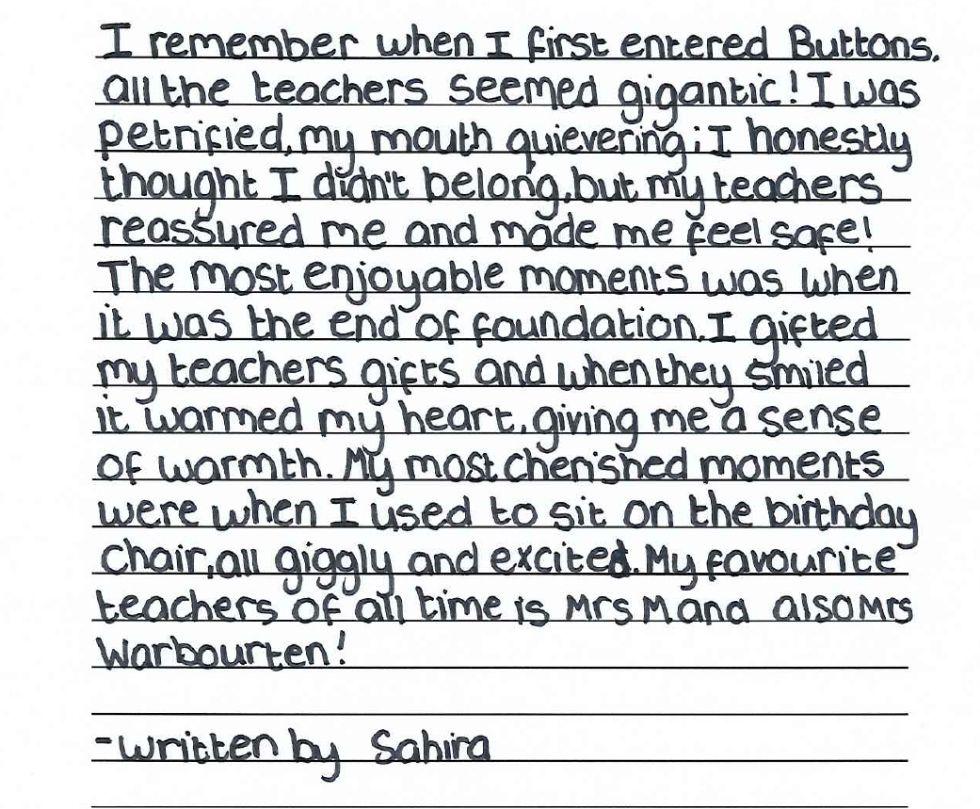 I remember when I first entered Buttons.
all the teachers seemed gigantic! I was
petrified, my mouth quievering; I honestly
thought I didn't belong, but my teachers
reassured me and made me feel safe!
The most enjoyable moments was when
it was the end of foundation. I gifted
my teachers gifts and when they smiled
it warmed my heart, giving me a sense
of warmth. My most cherished moments
were when I used to sit on the birthday
chair, all giggly and excited. My favourite
teachers of all time is Mrs Mand also Mrs
Warbourten!
-written by Sahira